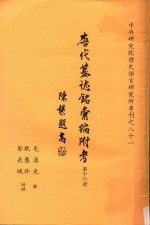 中央研究院歷史語言研究所專刊之八十一
唐代墓誌銘彙編附考
第十六冊
陳槃題耑
毛漢光 撰
耿慧玲
郭長城 助理